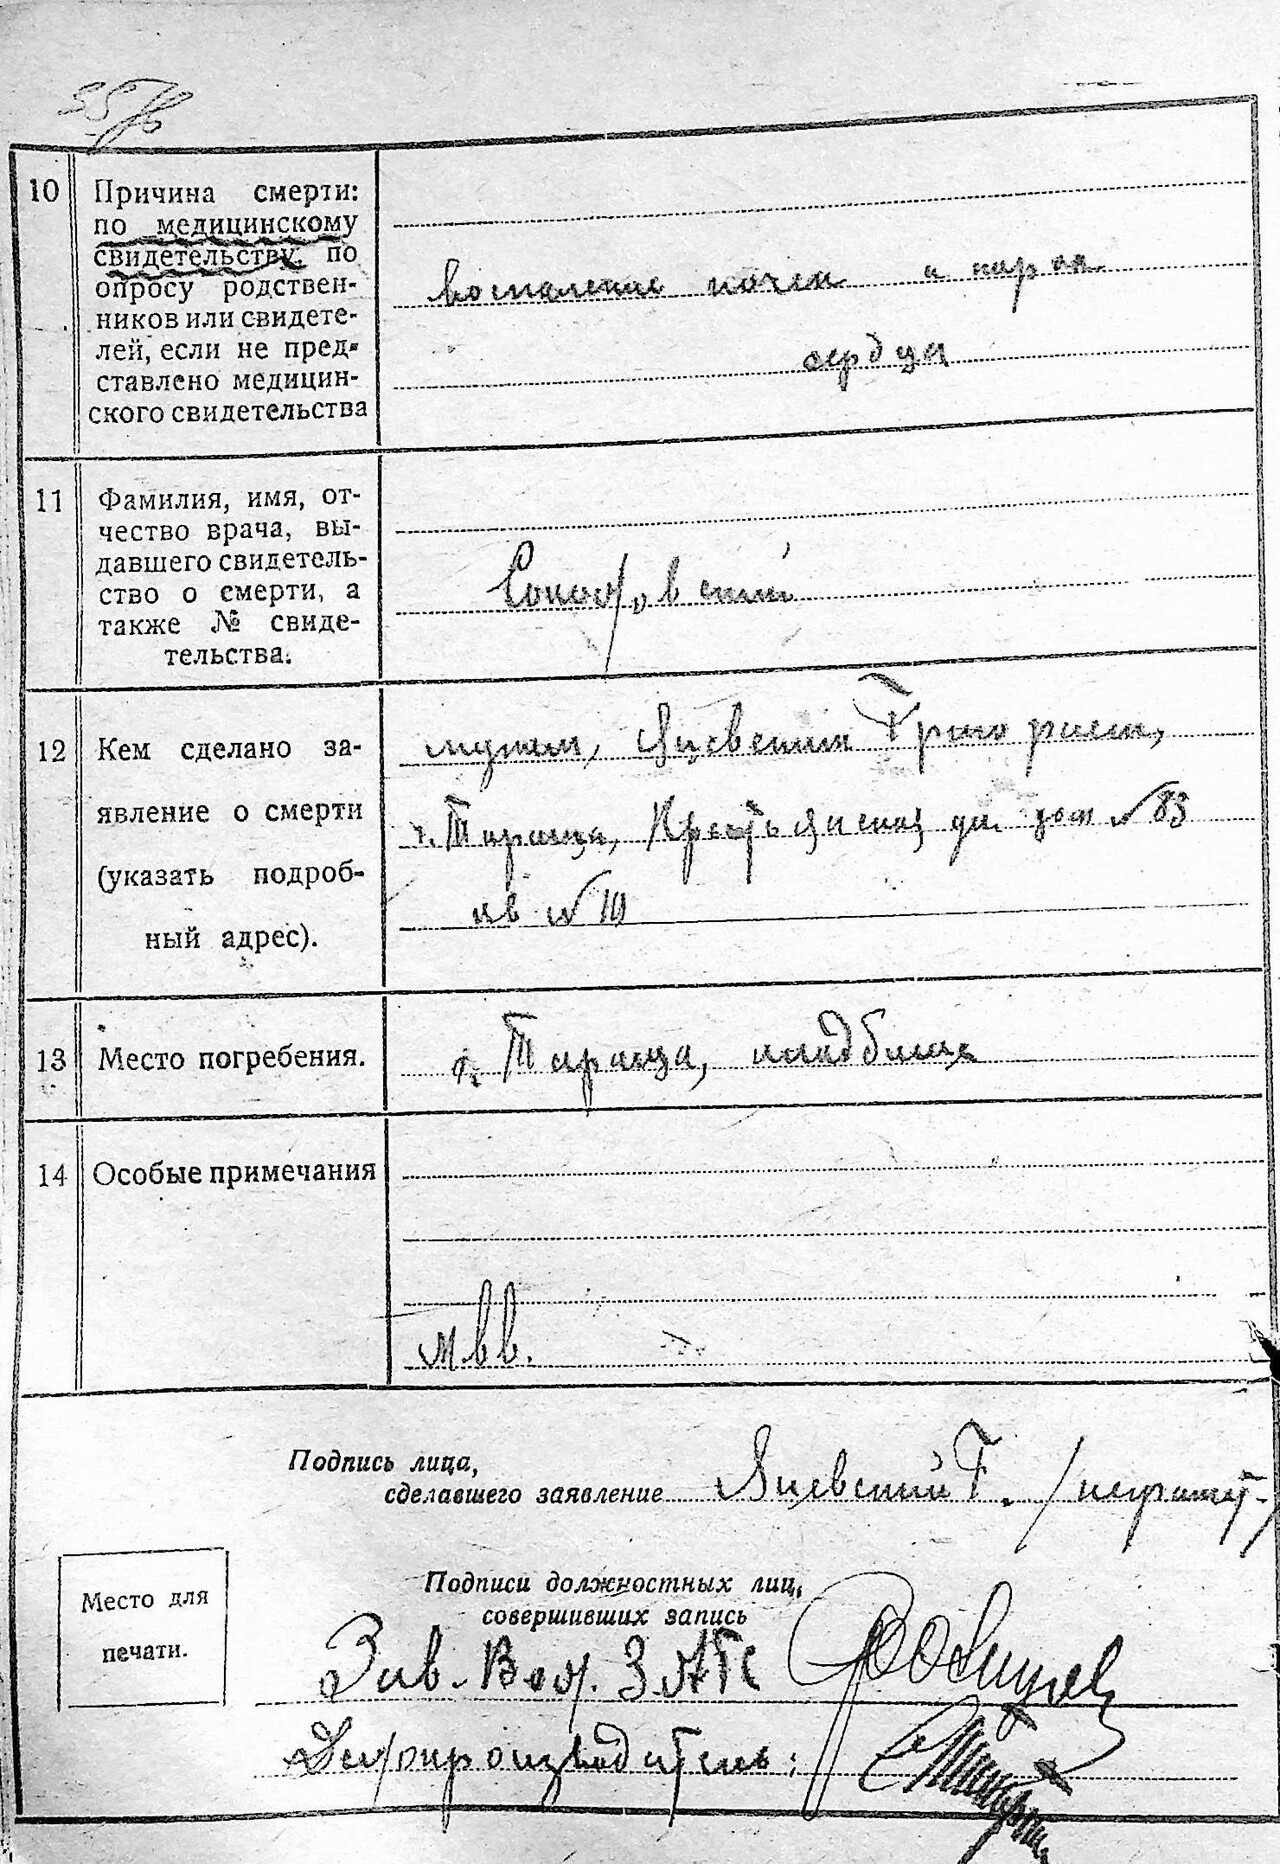 10
Причина смерти:
по медицинскому
свидетельству, по
опросу родствен-
ников или свидете-
лей, если не пред-
ставлено медицин-
ского свидетельства
воспаление почек и
сердца
11
Фамилия, имя, от-
чество врача, вы-
давшего свидетель-
ство о смерти, а
также № свиде-
тельства.
12
Кем сделано за-
явление о смерти
(указать подроб-
ный адрес).
мужем, Яцевский Григорием,
г. Тараща, Крестьянская ул. дом № 83
кв № 10
13
Место погребения.
г. Тараща, кладбище
14
Особые примечания
Подпись лица,
сделавшего заявление Яцевский Г.
Место для
печати.
Подписи должностных лиц,
совершивших запись
Зав. ЗАГС
Делопроизводитель: